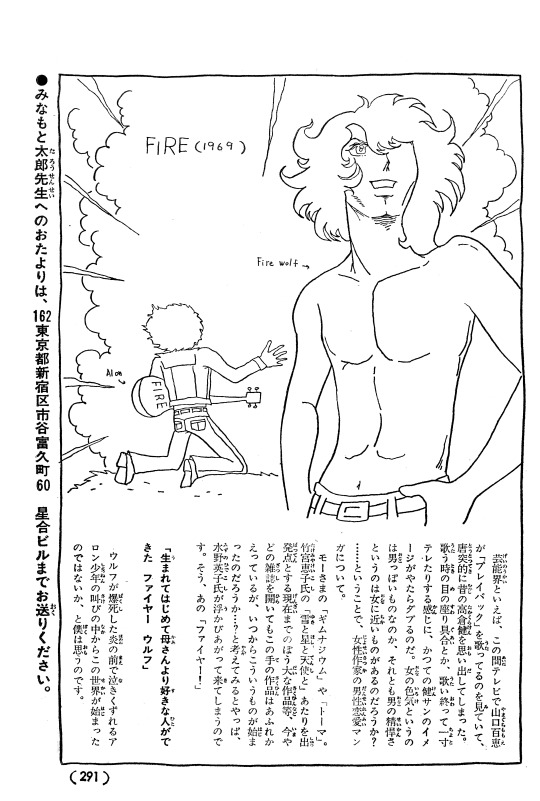 FIRE (1969)
Fire wolf→
Alon
FIRE
芸能界といえば、この間テレビで山口百恵
が「プレイバック」を歌ってるのを見ていて、
唐突的に昔の高倉健を思い出してしまった。
歌う時の目の座り具合とか、歌い終って一寸
テレたりする感じに、かつての健サンのイメ
ージがやたらダブるのだ。女の色気というの
は男っぽいものなのか、それとも男の精悍さ
というのは女に近いものがあるのだろうか?
……ということで、女性作家の男性恋愛マン
ガについて。
モーさまの「ギムナジウム」や「トーマ」。
竹宮恵子氏の「雪と星と天使と」あたりを出
発点とする現在までのぼう大な作品等、今や
どの雑誌を開いてもこの手の作品はあふれか
えっているが、いつからこういうものが始ま
ったのだろうか…?と考えてみるとやっぱ、
水野英子氏が浮かびあがって来てしまうので
す。そう、あの「ファイヤー!」
「生まれてはじめて母さんより好きな人がで
きた ファイヤー ウルフ」
ウルフが爆死した炎の前で泣きくずれるア
ロン少年の叫びの中からこの世界が始まった
のではないか、と僕は思うのです。
●みなもと太郎先生へのおたよりは、162東京都新宿区市谷富久町60 星合ビルまでお送りください。
(291)